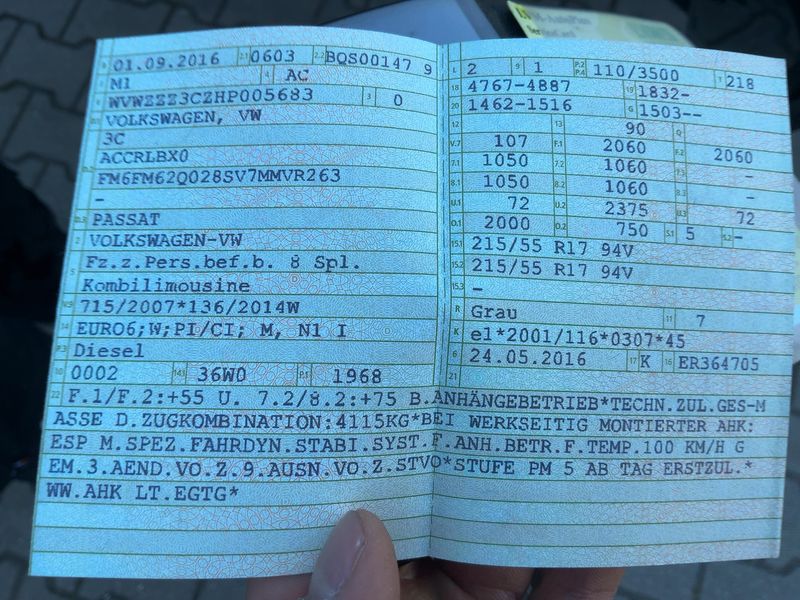 M-AutoPlus
B 01.09.2016 2.1 0603 2.2 BQS00147 9
J M1 4 AC
E WVWZZZ3CZHP005683 3 0
D.1 VOLKSWAGEN, VW
3C
D.2 ACCRLBX0
FM6FM62Q028SV7MMVR263
-
D.3 PASSAT
2 VOLKSWAGEN-VW
5 Fz.z.Pers.bef.b. 8 Spl.
Kombilimousine
V.9 715/2007*136/2014W
14 EURO6;W;PI/CI; M, N1 I
P.3 Diesel
10 0002 14.1 36W0 P.1 1968
L 2 9 1 P.2 P.4 110/3500 T 218
18 4767-4887 19 1832-
20 1462-1516 G 1503--
12 13 90 Q
V.7 107 F.1 2060 F.2 2060
7.1 1050 7.2 1060 7.3 -
8.1 1050 8.2 1060 8.3 -
U.1 72 U.2 2375 U.3 72
O.1 2000 O.2 750 S.1 5 S.2 -
15.1 215/55 R17 94V
15.2 215/55 R17 94V
15.3 -
R Grau 11 7
K e1*2001/116*0307*45
6 24.05.2016 17 K 16 ER364705
21
22 F.1/F.2:+55 U. 7.2/8.2:+75 B.ANHÄNGEBETRIEB*TECHN.ZUL.GES-M
ASSE D.ZUGKOMBINATION:4115KG*BEI WERKSEITIG MONTIERTER AHK:
ESP M.SPEZ.FAHRDYN.STABI.SYST.F.ANH.BETR.F.TEMP.100 KM/H G
EM.3.AEND.VO.Z.9.AUSN.VO.Z.STVO*STUFE PM 5 AB TAG ERSTZUL.*
WW.AHK LT.EGTG*